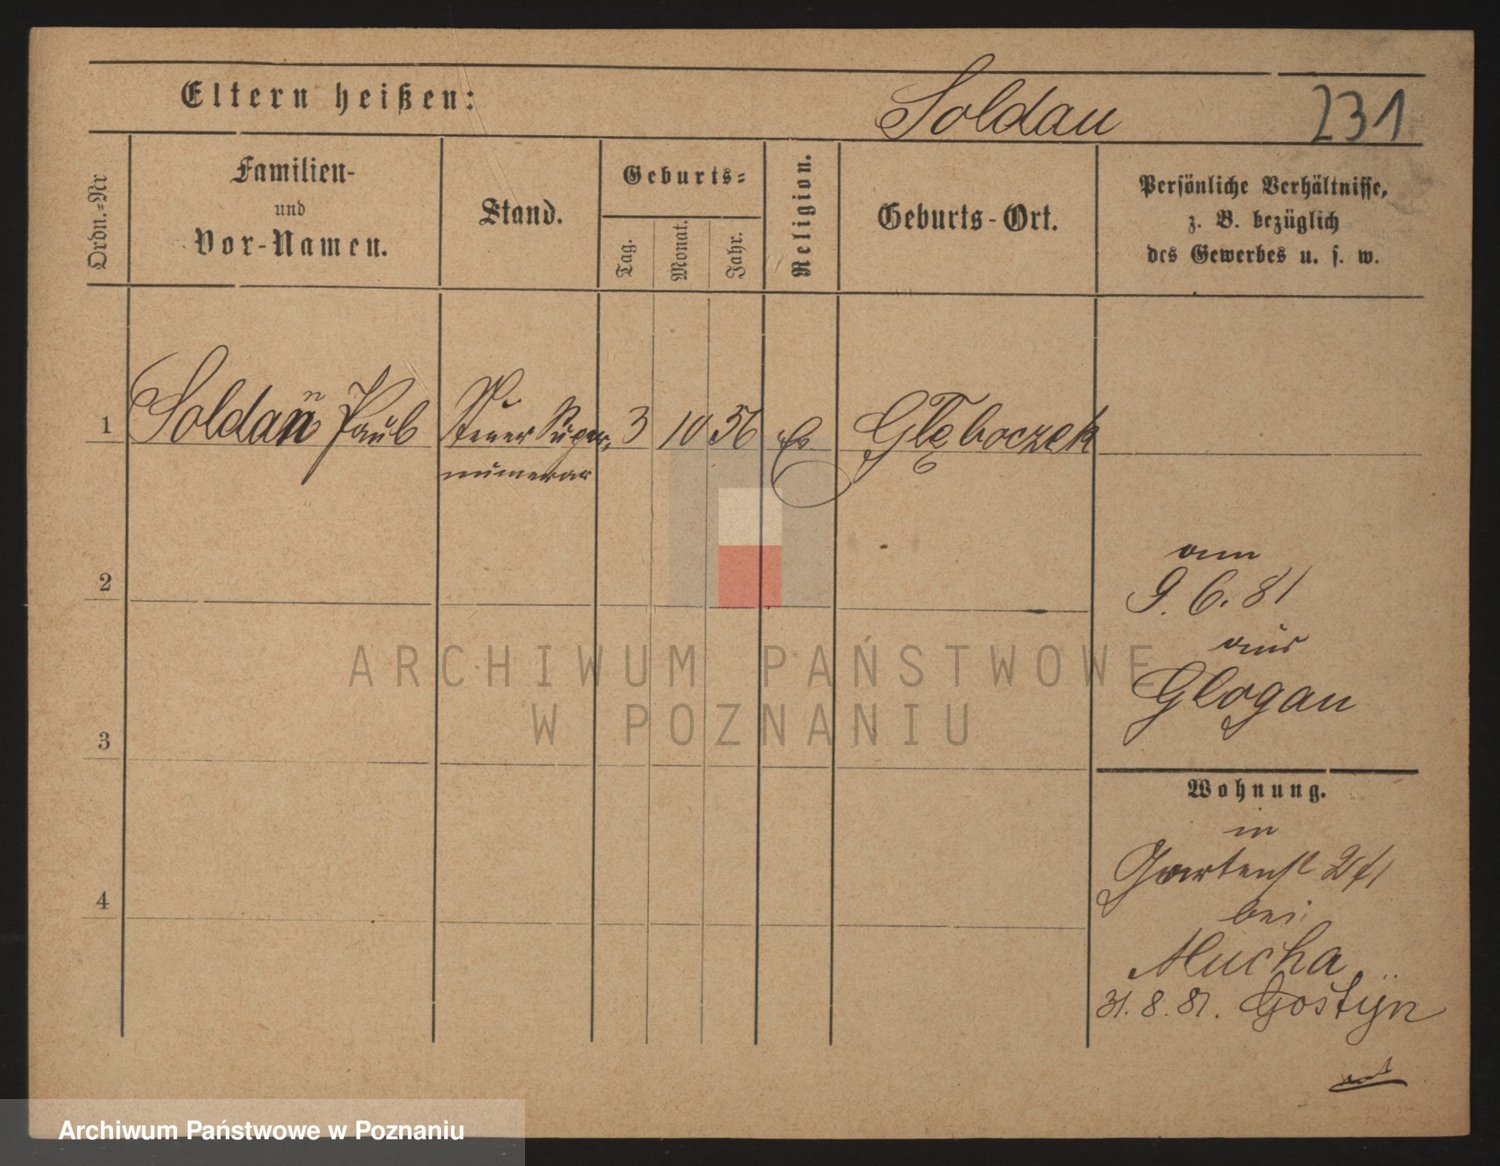 Eltern heißen:
Soldau
231
Ordn.-Nr
Familien-
und
Vor-Namen.
Stand.
Geburts-
Tag.
Monat.
Jahr.
Religion.
Geburts-Ort.
Persönliche Verhältnisse,
z. B. bezüglich
des Gewerbes u. s. w.
1
Soldan Paul
Steuer Super-
numerar
3
10
56
Ev
Głęboczek
2
3
4
am
9. 6. 81
aus
Glogau
Wohnung.
in
Gartenst
bei
Mucha
31. 8. 81. Gostÿn
ARCHIWUM PAŃSTWOWE
W POZNANIU
Archiwum Państwowe w Poznaniu